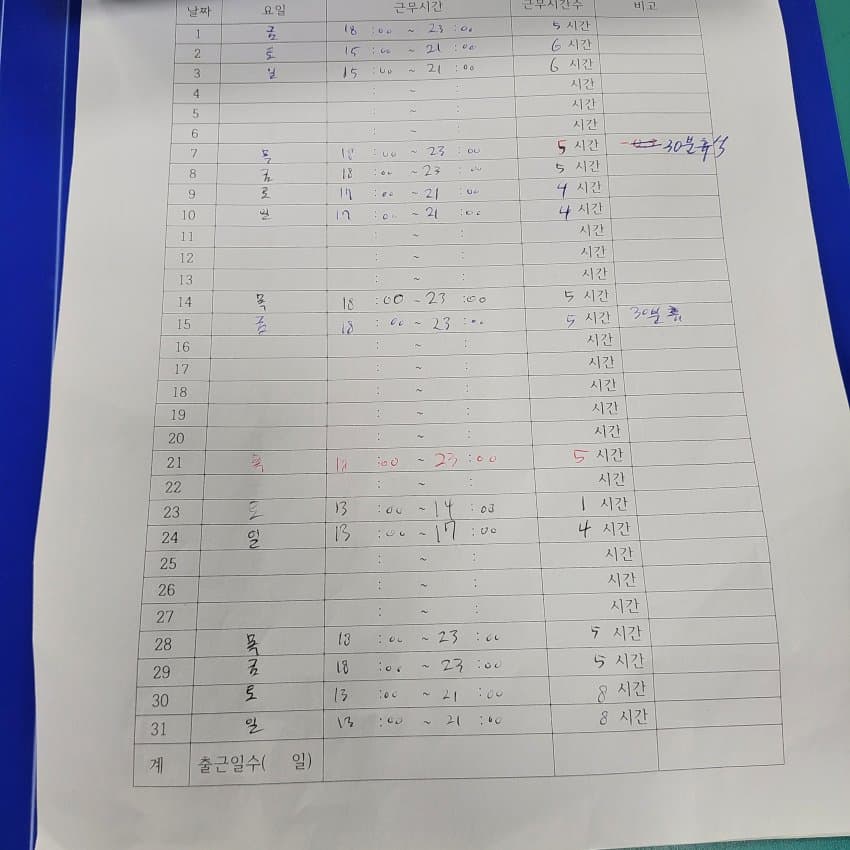 날짜 요일 근무시간 근무시간수 비고
1 금 18 :00 ~ 23 :00 5 시간
2 토 15 :00 ~ 21 :00 6 시간
3 일 15 :00 ~ 21 :00 6 시간
4 : ~ : 시간
5 : ~ : 시간
6 : ~ : 시간
7 목 18 :00 ~ 23 :00 5 시간 30분휴식
8 금 18 :00 ~ 23 :00 5 시간
9 토 17 :00 ~ 21 :00 4 시간
10 일 17 :00 ~ 21 :00 4 시간
11 : ~ : 시간
12 : ~ : 시간
13 : ~ : 시간
14 목 18 :00 ~ 23 :00 5 시간
15 금 18 :00 ~ 23 :00 5 시간 30분
16 : ~ : 시간
17 : ~ : 시간
18 : ~ : 시간
19 : ~ : 시간
20 : ~ : 시간
21 목 18 :00 ~ 23 :00 5 시간
22 : ~ : 시간
23 토 13 :00 ~ 14 :00 1 시간
24 일 13 :00 ~ 17 :00 4 시간
25 : ~ : 시간
26 : ~ : 시간
27 : ~ : 시간
28 목 18 :00 ~ 23 :00 5 시간
29 금 18 :00 ~ 23 :00 5 시간
30 토 13 :00 ~ 21 :00 8 시간
31 일 13 :00 ~ 21 :00 8 시간
계 출근일수( 일)